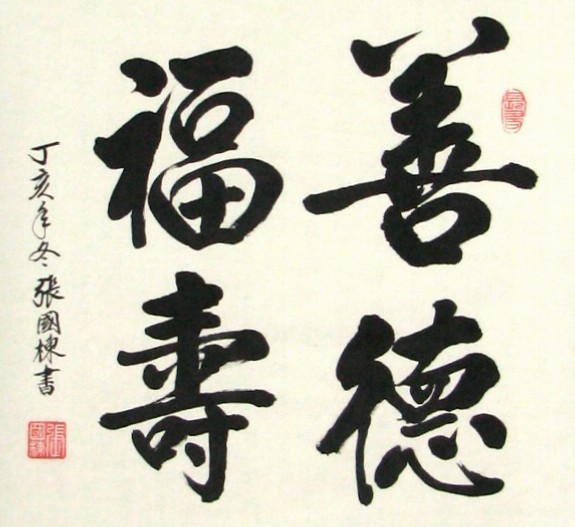 善德
福壽
丁亥年冬張國棟書
張國棟